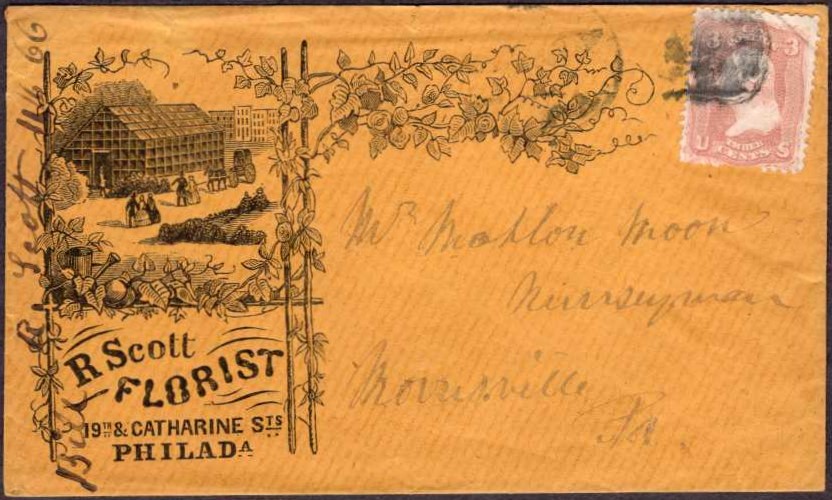 R Scott
FLORIST
19TH & CATHARINE STS
PHILADA
Bill R Scott 66
3
3
U S
THREE
CENTS
Mr Mahlon Moon
Nurseyman
Morrisville
Pa.